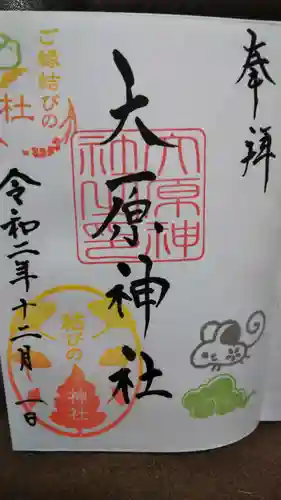 奉拝
大原神社
大原神社之印
ご縁結びの
社
結びの
神社
令和二年十二月一日